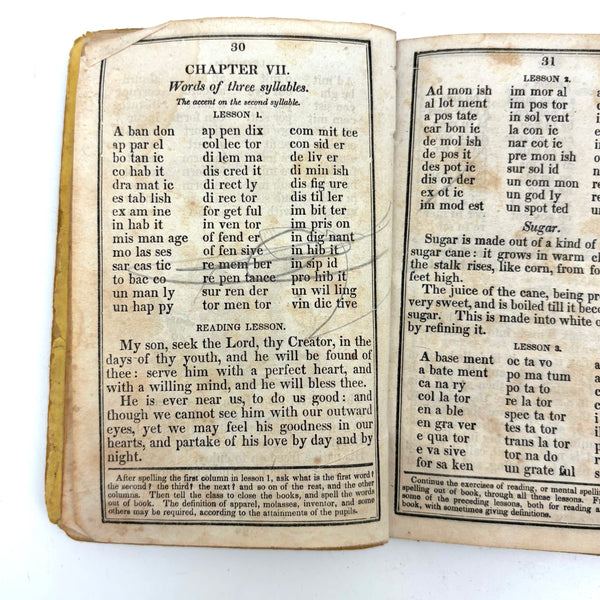 30
CHAPTER VII.
Words of three syllables.
The accent on the second syllable.
LESSON 1.
A ban don ap pen dix com mit tee
ap par el col lec tor con sid er
bo tan ic di lem ma de liv er
co hab it dis cred it di min ish
dra mat ic di rect ly dis fig ure
es tab lish di rec tor dis til ler
ex am ine for get ful im bit ter
in hab it in ven tor im pris on
mis man age of fend er in dig nant
mo las ses of fen sive in hib it
sar cas tic re mem ber in sip id
to bac co re pen tance pro hib it
un man ly sur ren der un wil ling
un hap py tor men tor vin dic tive
READING LESSON.
My son, seek the Lord, thy Creator, in the
days of thy youth, and he will be found of
thee: serve him with a perfect heart, and
with a willing mind, and he will bless thee.
He is ever near us, to do us good: and
though we cannot see him with our outward
eyes, yet we may feel his goodness in our
hearts, and partake of his love by day and by
night.
After spelling the first column in lesson 1, ask what is the first word?
the second? the third? the next? and so on of the rest, and the other
columns. Then tell the class to close the books, and spell the words
out of book. The definition of apparel, molasses, inventor, and some
others may be required, according to the attainments of the pupils.
31
LESSON 2.
Ad mon ish im mor al
al lot ment im pos tor
a pos tate in sol vent
car bon ic la con ic
de mol ish nar cot ic
de pos it pre mon ish
des pot ic sur sol id
dis or der un com mon
ex ot ic un god ly
im mod est un spot ted
Sugar.
Sugar is made out of a kind of
sugar cane: it grows in warm
the stalk rises, like corn, from
feet high.
The juice of the cane, being
very sweet, and is boiled till it
sugar. This is made into white
by refining it.
LESSON 3.
A base ment oc ta vo
a bate ment po ma tum
ca na ry po ta to
col la tor re la tor
en a ble spec ta tor
en gra ver tes ta tor
e qua tor trans la tor
e va sive tor na do
for sa ken un grate ful
Continue the exercises of reading, or mental
spelling out of book, through all these lessons.
some of the preceding lessons, both for reading
book, with sometimes giving definitions.